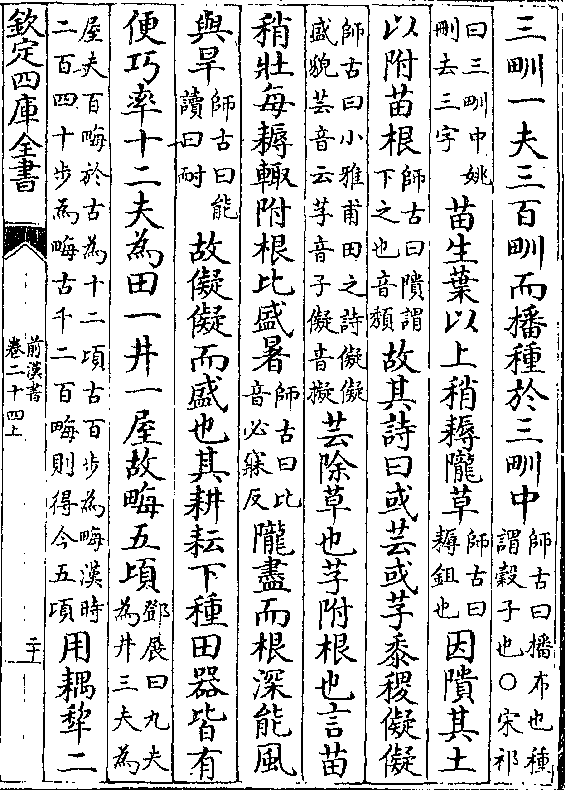 三甽一夫三百甽而播種於三甽中師古曰播布也種謂穀子也○宋祁
曰三甽中姚刪去三字苗生葉以上稍耨隴草師古曰耨鉏也因隤其土
以附苗根師古曰隤謂下之也音頹故其詩曰或芸或芓黍稷儗儗
師古曰小雅甫田之詩儗儗盛貌芸音云芓音子儗音擬芸除草也芓附根也言苗
稍壯每耨輙附根比盛暑師古曰比音必寐反隴盡而根深能風
與旱師古曰能讀曰耐故儗儗而盛也其耕耘下種田器皆有
便巧率十二夫為田一井一屋故畮五頃鄧展曰九夫為井三夫為
屋夫百畮於古為十二頃古百步為畮漢時二百四十步為畮古千二百畮則得今五頃用耦犂二
欽定四庫全書
前漢書
卷二十四上
二十